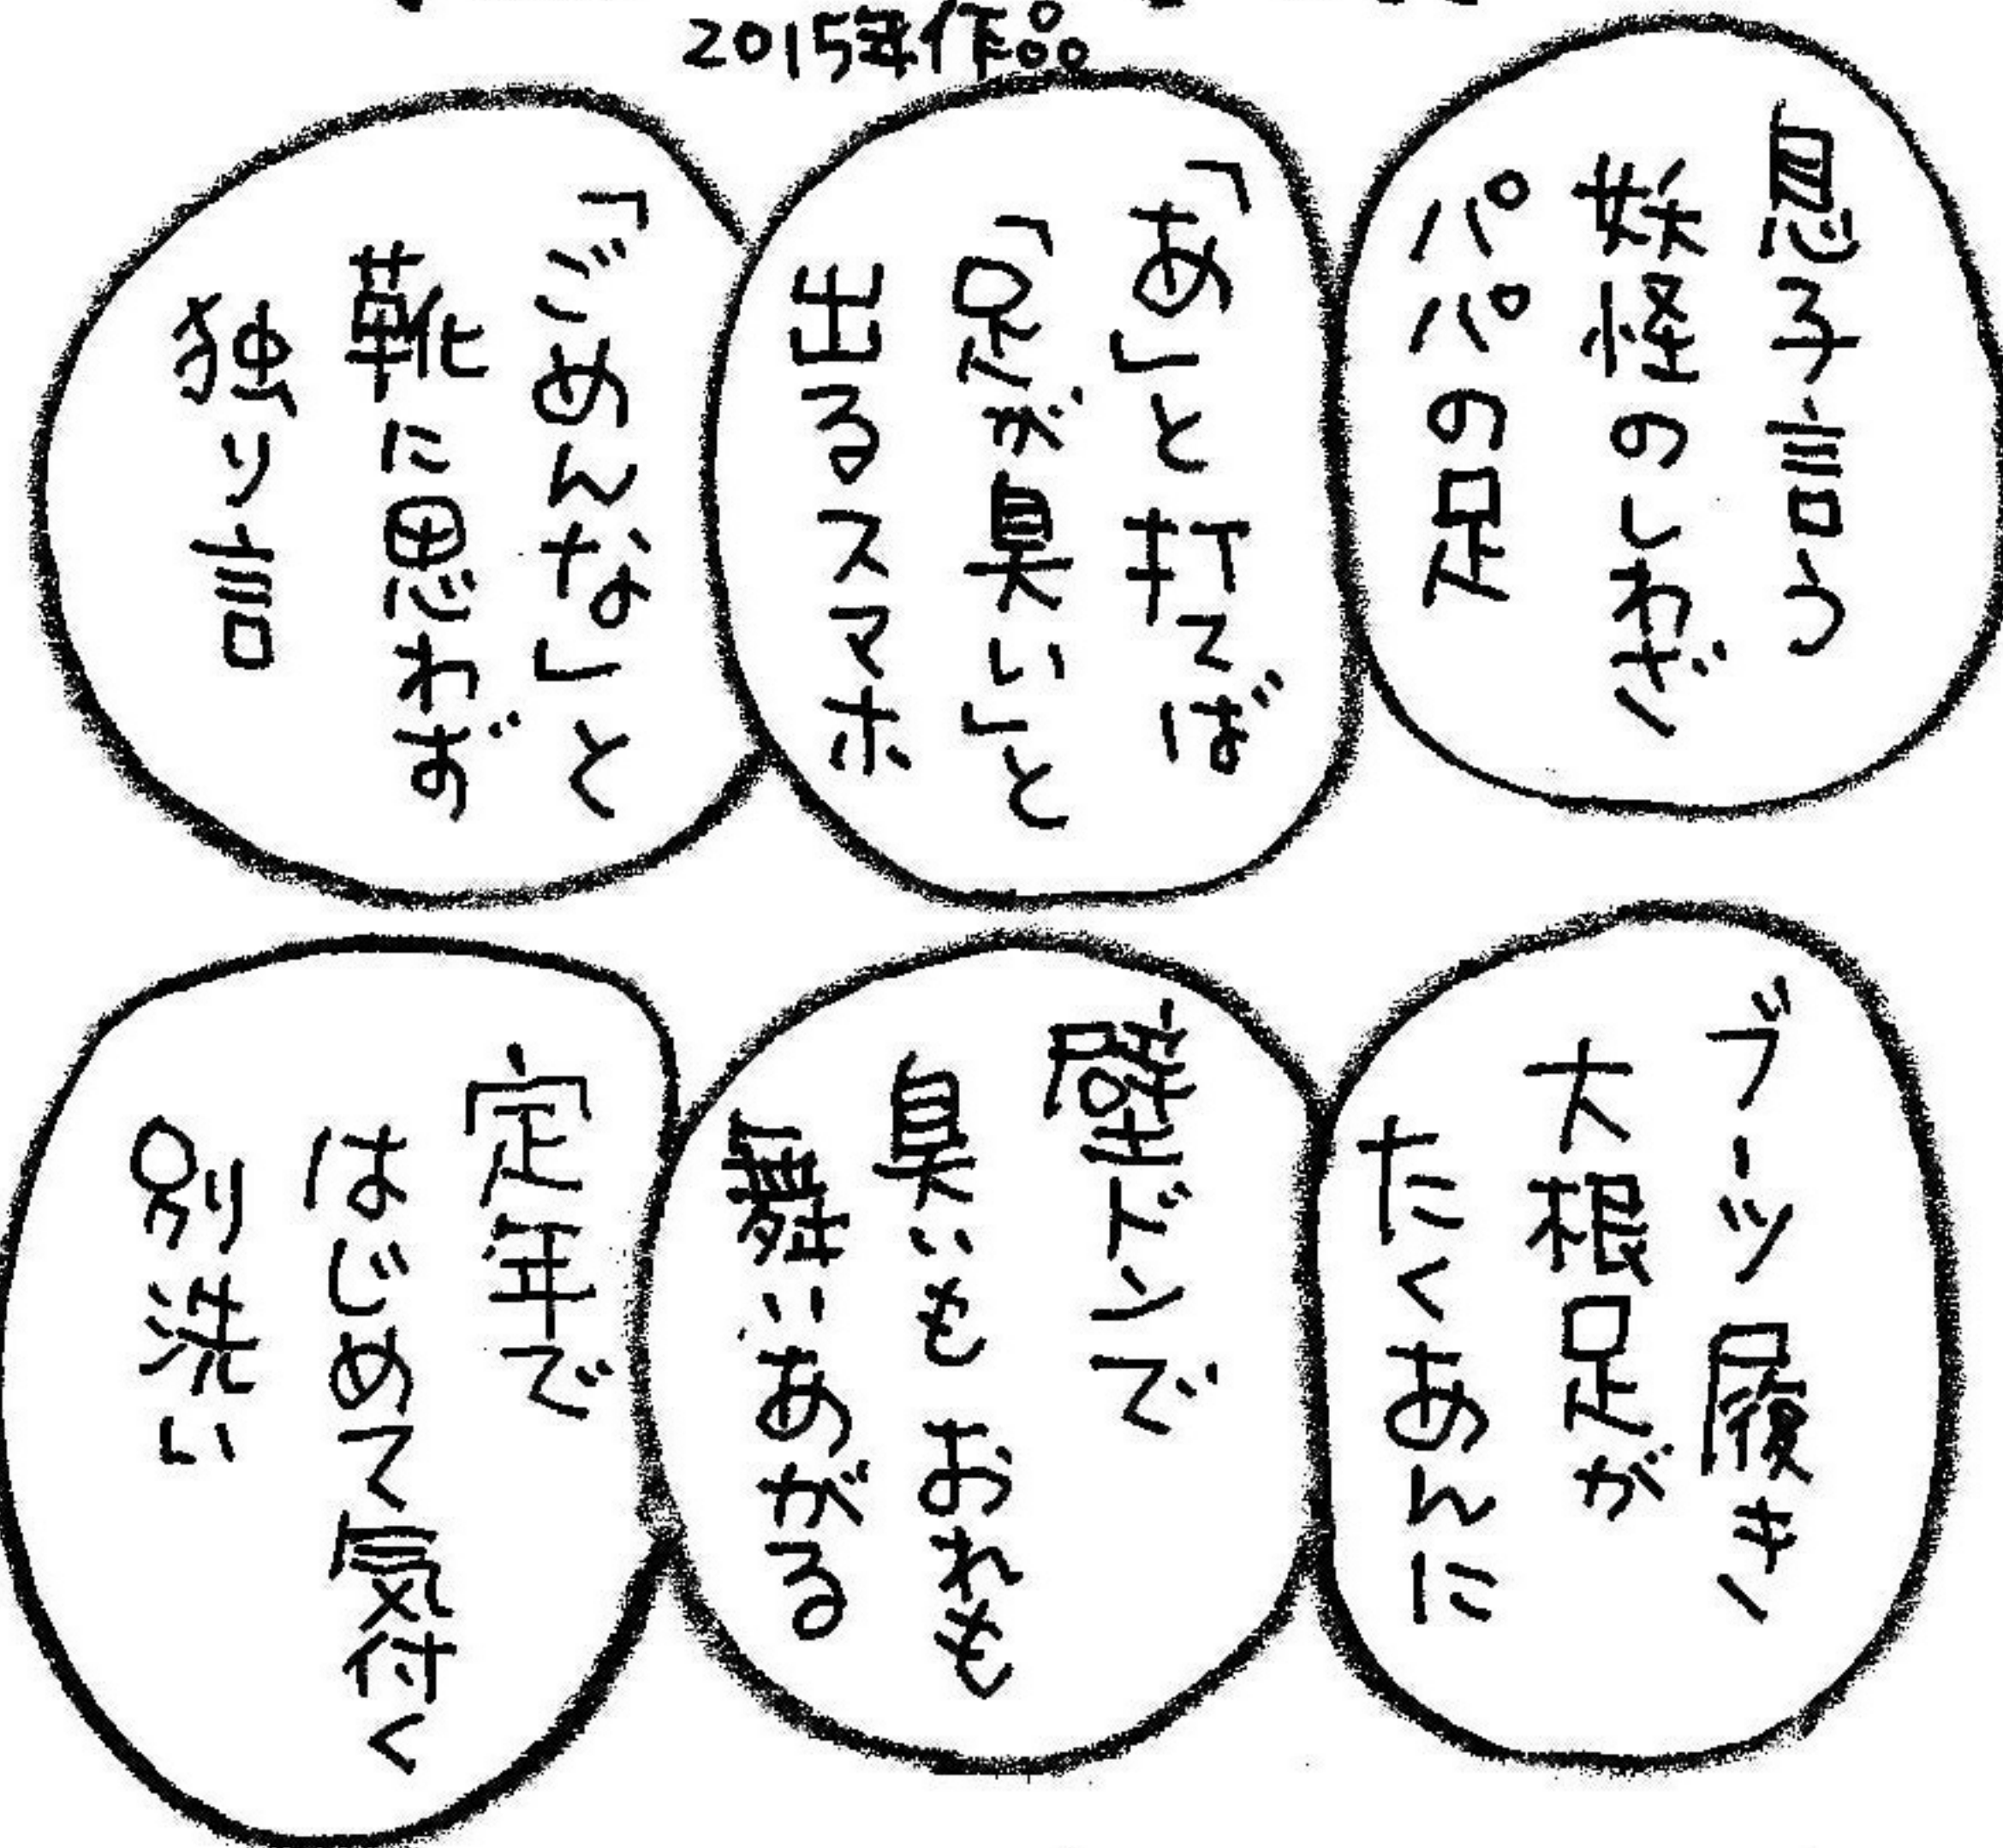 2015年作品
息子言う
妖怪のしわざ
パパの足
「あ」と打てば
「足が臭い」と
出るスマホ
「ごめんな」と
靴に思わず
独り言
ブーツ履き
大根足が
たくあんに
壁ドンで
臭いもおれも
舞いあがる
定年で
はじめて気付く
別洗い